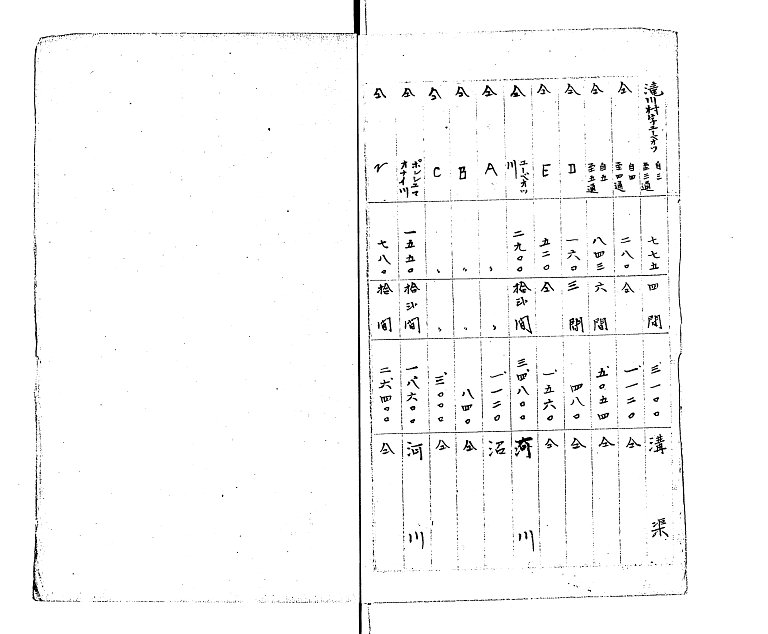 滝川村字エーベオツ 自三至三通 七七五 四間 三、一〇〇 溝渠
仝 自四至四通 二八〇 仝 一、一二〇 仝
仝 自五至五通 八四三 六間 五、〇五四 仝
仝 D 一六〇 三間 四八〇 仝
仝 E 五二〇 仝 一、五六〇 仝
仝 エーベオツ川 二九〇〇 拾弐間 三四、八〇〇 河川
仝 A 〃 〃 一、一二〇 沼
仝 B 〃 〃 八四〇 仝
仝 C 〃 〃 三、〇〇〇 仝
仝 オナイ川 一五五〇 拾弐間 一八、六〇〇 河川
仝 七八〇 拾間 二六、四〇〇 仝